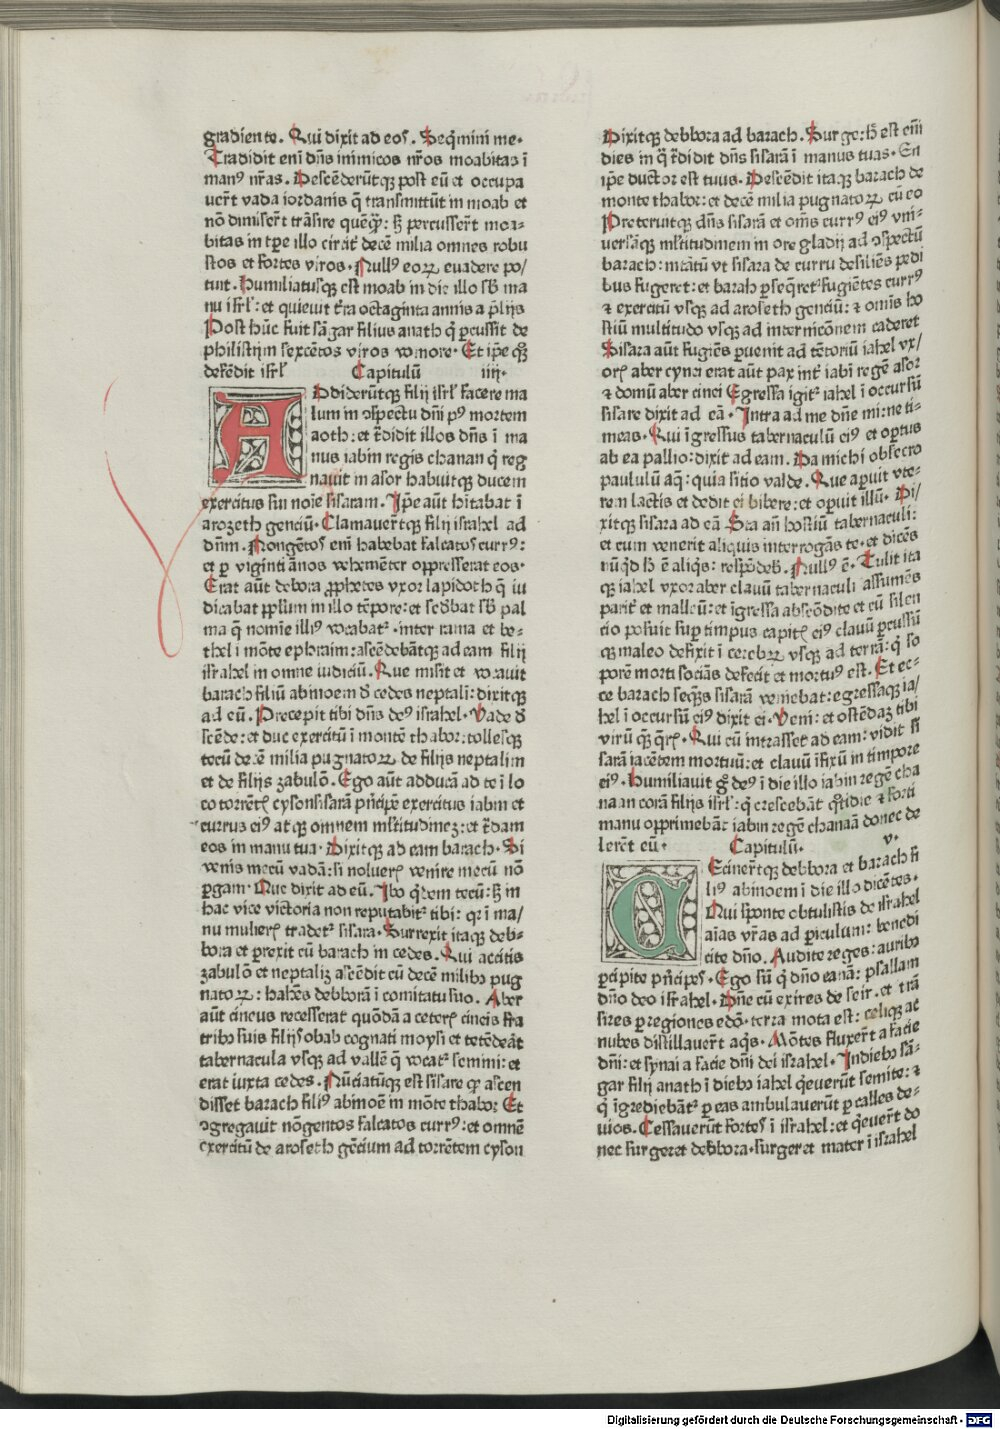 gradiente. Qui dixit ad eos. Seq̄mini me.
Tradidit eni dn̄s inimicos nr̄os moabitas ī
manꝰ nr̄as. Descēderūtqꝫ post eū et occupa
uert̄ vada iordanis q̄ transmittūt in moab et
nō dimisert̄ trāsire quēqꝫ̄: sꝫ percusserт̄ moa-
bitas in tp̄e illo circit̄ decē milia omnes robu
stos et fortes viros. Nullꝰ eoꝝ euadere po/
tuit. Humiliatusqꝫ est moab in die illo sb̄ ma
nu isrl̄: et quieuit tr̄a octaginta annis a p̄lijs
Post hūc fuit sāgar filius anath q̄ p̄cussit de
philistijm sexcētos viros vomore. Et ip̄e qꝫ
defēdit isrl̄ Capitulū iiij.
Addiderūtqꝫ filij isrl̄ facere ma
lum in ɔspectu dn̄i pꝰ mortem
aoth: et tr̄didit illos dn̄s ī ma
nus iabin regis chanan q̄ reg
nauit in asor habuitqꝫ ducem
exercitus sui noīe sisaram. Ip̄e aūt hītabat ī
arozeth genciū. Clamauert̄qꝫ filij israhel ad
dn̄m. Nongētos enī habebat falcatos currꝰ:
et ꝑ viginti ānos vehemēter oppresserat eos.
Erat aūt debora ꝓphetes vxor lapidoth q̄ iu
dicabat pp̄lum in illo tēpore: et sedb̄at sb̄ pal
ma q̄ nomīe illiꝰ vocabat᷒. inter rama et be-
thel ī mōte ephraim: ascēdebātqꝫ ad eam filij
israhel in omne iudiciū. Que misit et vocauit
barach filiū abinoem d̄ cedes neptali: dixitqꝫ
ad eū. Precepit tibi dn̄s deꝰ israhel. Vade d̄
scēde: et duc exercitū ī montē thabor: tollesqꝫ
tecū decē milia pugnatoꝝ de filijs neptalim
et de filijs zabulō. Ego aūt adducā ad te ī lo
co torrēt̄ cyson sisarā pn̄cipē exercitus iabin et
currus eiꝰ atqꝫ omnem ml̄titudineꝫ: et tr̄dam
eos in manu tua. Dixitqꝫ ad eam barach. Si
venis mecū vadā: si nolueris venire mecū nō
pergam. Que dixit ad eū. Ibo q̄dem tecū: sꝫ in
hac vice victoria non reputabit᷒ tibi: qr ī ma/
nu mulier̄ tradet᷒ sisara. Surrexit itaqꝫ deb-
bora et perrexit cū barach in cedes. Qui accitis
zabulō et neptaliꝫ ascēdit cū decē milibꝰ pug
natoꝝ: habēs debborā ī comitatu suo. Aber
aūt cineus recesserat quōdā a ceter̄ cineis fra
tribꝰ suis filijs obab cognati moysi et tetēderat
tabernacula vsqꝫ ad vallē q̄ vocat᷒ sennni: et
erat iuxta cedes. Nūciatūqꝫ est sisare qꝫ ascen
disset barach filiꝰ abinoē in mōte thabor Et
ɔgregauit nōgentos falcatos currꝰ: et omnē
exercitū de aroseth gēcium ad torrētem cyson
Dixitqꝫ debbora ad barach. Surge: h̄ est enī
dies in q̄ tr̄didit dn̄s sisarā ī manus tuas. En
ip̄e ductor est tuus. Descēdit itaqꝫ barach de
monte thabor: et decē milia pugnatoꝝ cū eo
Preteruitqꝫ dn̄s sisarā et om̄s currꝰ eiꝰ vni-
uersāqꝫ ml̄titudinem in ore gladij ad ɔspectū
barach: intātū vt sisara de curru desiliēs pedi
bus fugeret: et barah ꝑseq̄ret᷒ fugiētes currꝰ
et exercitū vsqꝫ ad aroseth genciū: et omīs ho
stiū multitudo vsqꝫ ad internicōnem caderet
Sisara aūt fugiēs ꝑuenit ad tētoriū iahel vx/
or̄ aber cyna erat aūt pax int̄ iabī regē asor
et domū aber cinei Egressa igit᷒ iahel ī occursū
sisare dixit ad eā. Intra ad me dn̄e mi: ne ti-
meas. Qui īgressus tabernaculū eiꝰ et opertus
ab ea pallio: dixit ad eam. Da michi obsecro
paululū aq̄: quia sitio valde. Que aperuit vte-
rem lactis et dedit ei bibere: et operuit illū. Di/
xitqꝫ sisara ad eā Sta an̄ hostiū tabernaculi:
et cum venerit aliquis interrogās te. et dicēs
nū q̄d h̄ ē aliq̄s: respōdeb̄. Nullꝰ ē. Tulit ita
qꝫ iahel vxor aber clauū tabernaculi assumēs
parit̄ et malleū: et īgressa abscōdite et cū silen
cio posuit supr̄ timpus capit̄ eiꝰ clauū ꝑcussū
qꝫ maleo defixit ī cerebꝝ vsqꝫ ad terrā: q̄ so
porē morti sociās defecit et mortuꝰ est. Et ec-
ce barach seq̄ns sisarā veniebat: egressaqꝫ ia/
hel ī occursū eiꝰ dixit ei. Veni: et ostēdaꝫ tibi
virū qꝫ̄ q̄ris. Qui cū intrasset ad eam: vidit si
sarā iacētem mortuū: et clauū ifixū in timpore
eiꝰ. Humiliauit gͦ deꝰ ī die illo iabin regē cha
naan corā filijs isrl̄: q̄ crescebāt qͦtidie et forti
manu opprimebāt iabin regē chanaā donec de
lerēt eū. Capitulū. v.
Cecinert̄qꝫ debbora et barach fi
liꝰ abinoem ī die illo dicētes.
Qui sponte obtulistis de israhel
aīas vr̄as ad periculum: benedi
cite dn̄o. Audite reges: auribꝰ
percipite pn̄cipes. Ego sū q̄ dn̄o canā: psallam
dn̄o deo israhel. Dn̄e cū exires de seir. et trā
sires per regiones edō. terra mota est: celiqꝫ ac
nubes distillauert̄ aq̄s. Mōtes fluxert̄ a facie
dn̄i: et synai a facie dn̄i dei israhel. In diebꝰ sā-
gar filij anath ī diebꝰ iahel q̄euerūt semite: et
q̄ īgrediebāt᷒ per eas ambulauerūt per calles de-
uios. Cessauerūt fortes ī israhel: et q̄euert̄ do
nec surgeret debbora. surgeret mater ī israhel
Digitalisierung gefördert durch die Deutsche Forschungsgemeinschaft - DFG